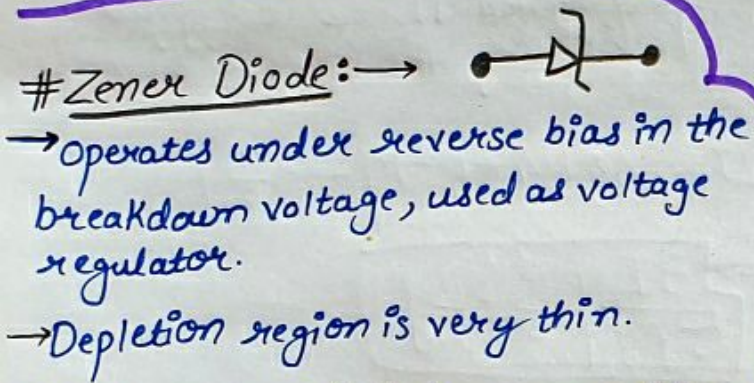 #Zener Diode:→
→operates under reverse bias in the
breakdown voltage, used as voltage
regulator.
→Depletion region is very thin.